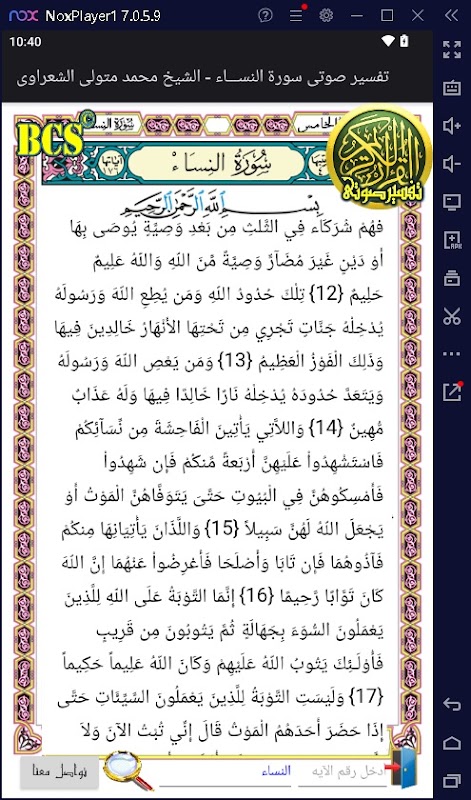 NoxPlayer1 7.0.5.9
10:40
تفسير صوتى سورة النســـاء - الشيخ محمد متولى الشعراوى
BCS
سُورَةُ النِسَاءْ
تفسير صوتى
بِسْــمِ اللَّهِ الرَّحْمَٰنِ الرَّحِيمِ
فَهُمْ شُرَكَاء فِي الثُّلُثِ مِن بَعْدِ وَصِيَّةٍ يُوصَى بِهَا
أَوْ دَيْنٍ غَيْرَ مُضَآرٍّ وَصِيَّةً مِّنَ اللّهِ وَاللّهُ عَلِيمٌ
حَلِيمٌ {12} تِلْكَ حُدُودُ اللّهِ وَمَن يُطِعِ اللّهَ وَرَسُولَهُ
يُدْخِلْهُ جَنَّاتٍ تَجْرِي مِن تَحْتِهَا الأَنْهَارُ خَالِدِينَ فِيهَا
وَذَلِكَ الْفَوْزُ الْعَظِيمُ {13} وَمَن يَعْصِ اللّهَ وَرَسُولَهُ
وَيَتَعَدَّ حُدُودَهُ يُدْخِلْهُ نَارًا خَالِدًا فِيهَا وَلَهُ عَذَابٌ
مُّهِينٌ {14} وَاللاَّتِي يَأْتِينَ الْفَاحِشَةَ مِن نِّسَآئِكُمْ
فَاسْتَشْهِدُواْ عَلَيْهِنَّ أَرْبَعةً مِّنكُمْ فَإِن شَهِدُواْ
فَأَمْسِكُوهُنَّ فِي الْبُيُوتِ حَتَّىَ يَتَوَفَّاهُنَّ الْمَوْتُ أَوْ
يَجْعَلَ اللّهُ لَهُنَّ سَبِيلاً {15} وَاللَّذَانَ يَأْتِيَانِهَا مِنكُمْ
فَآذُوهُمَا فَإِن تَابَا وَأَصْلَحَا فَأَعْرِضُواْ عَنْهُمَا إِنَّ اللّهَ
كَانَ تَوَّابًا رَّحِيمًا {16} إِنَّمَا التَّوْبَةُ عَلَى اللّهِ لِلَّذِينَ
يَعْمَلُونَ السُّوَءَ بِجَهَالَةٍ ثُمَّ يَتُوبُونَ مِن قَرِيبٍ
فَأُوْلَـئِكَ يَتُوبُ اللّهُ عَلَيْهِمْ وَكَانَ اللّهُ عَلِيماً حَكِيماً
{17} وَلَيْسَتِ التَّوْبَةُ لِلَّذِينَ يَعْمَلُونَ السَّيِّئَاتِ حَتَّى
إِذَا حَضَرَ أَحَدَهُمُ الْمَوْتُ قَالَ إِنِّي تُبْتُ الآنَ وَلاَ
أدخل رقم الآيه
النساء
تواصل معنا